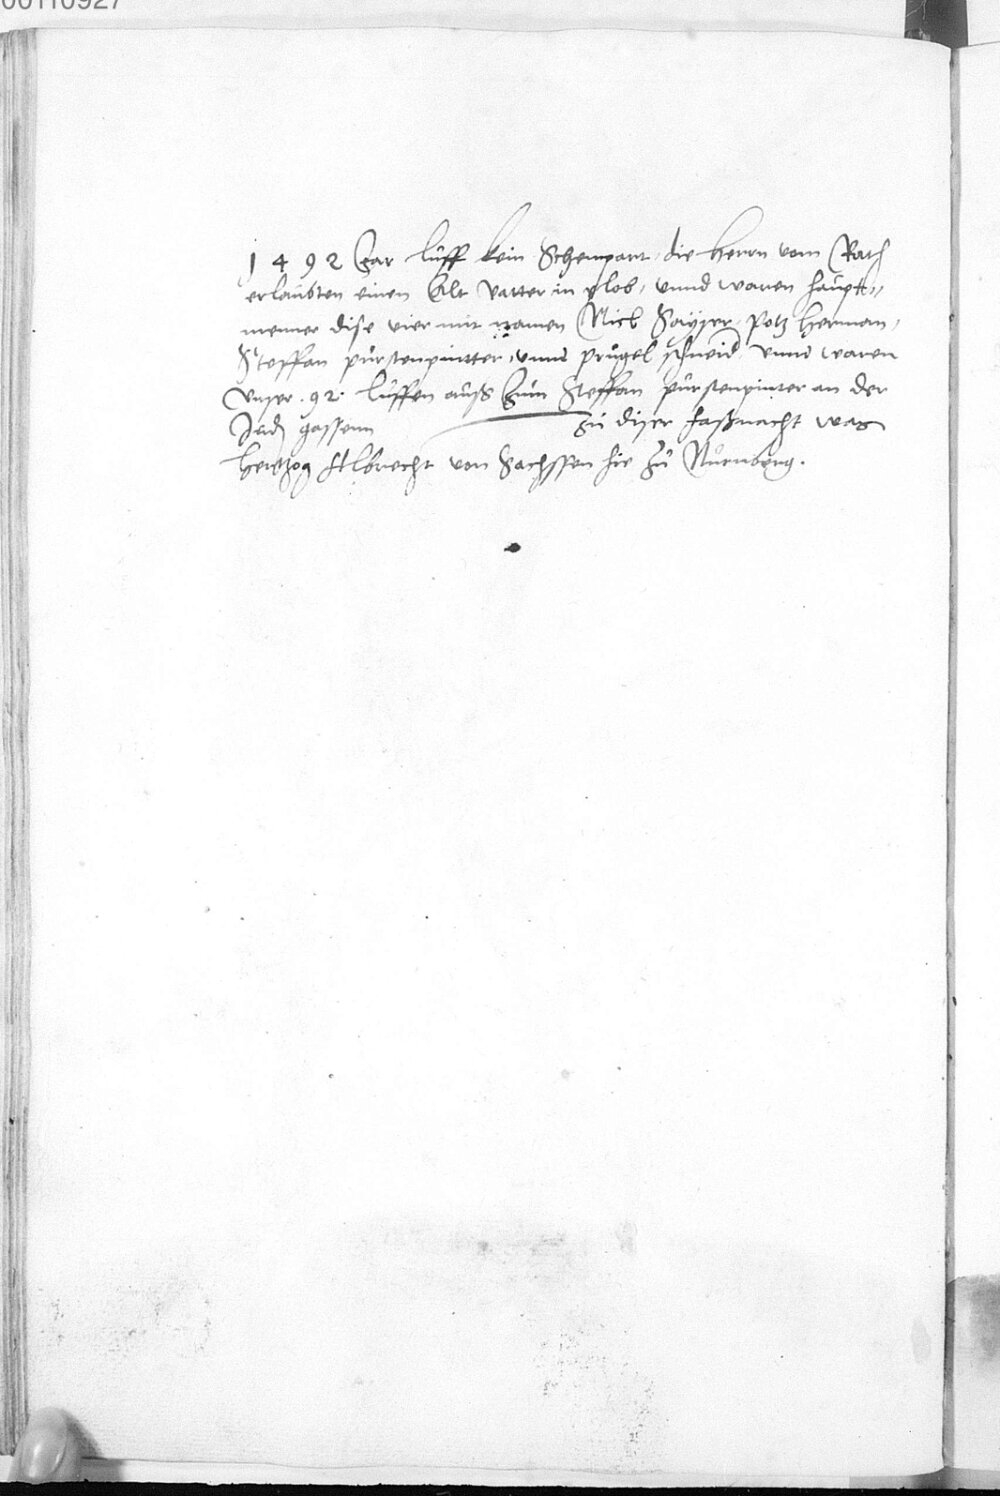 00110927
1492 Jar lüff kein Schempart, die Herrn vom Rath
erlaubten einen Alt vatter in, vnnd waren haupt-
menner dise vier mit namen Nicl Sayser, Potz Herman,
Steffan pürstenpintter, vnnd prügel schneid, vnnd waren
vnser .92. lüffen auß zum Steffan pürstenpinter an der
gassenn zu diser faßnacht was
Hertzog Albrecht von Sachssen hie zu Nürnberg.